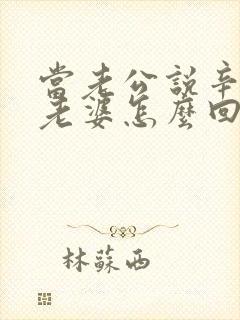 當老公說辛
老婆怎麼回
林蘇西